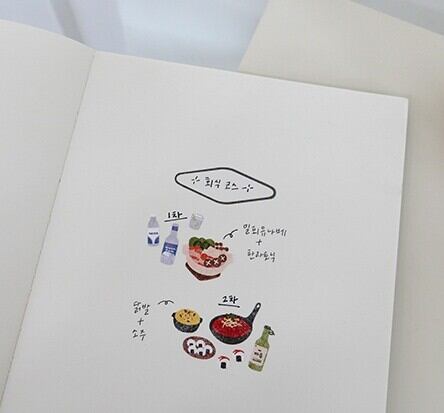 회식 코스
1차
밀푀유나베
+
한라토닉
2차
닭발
+
소주